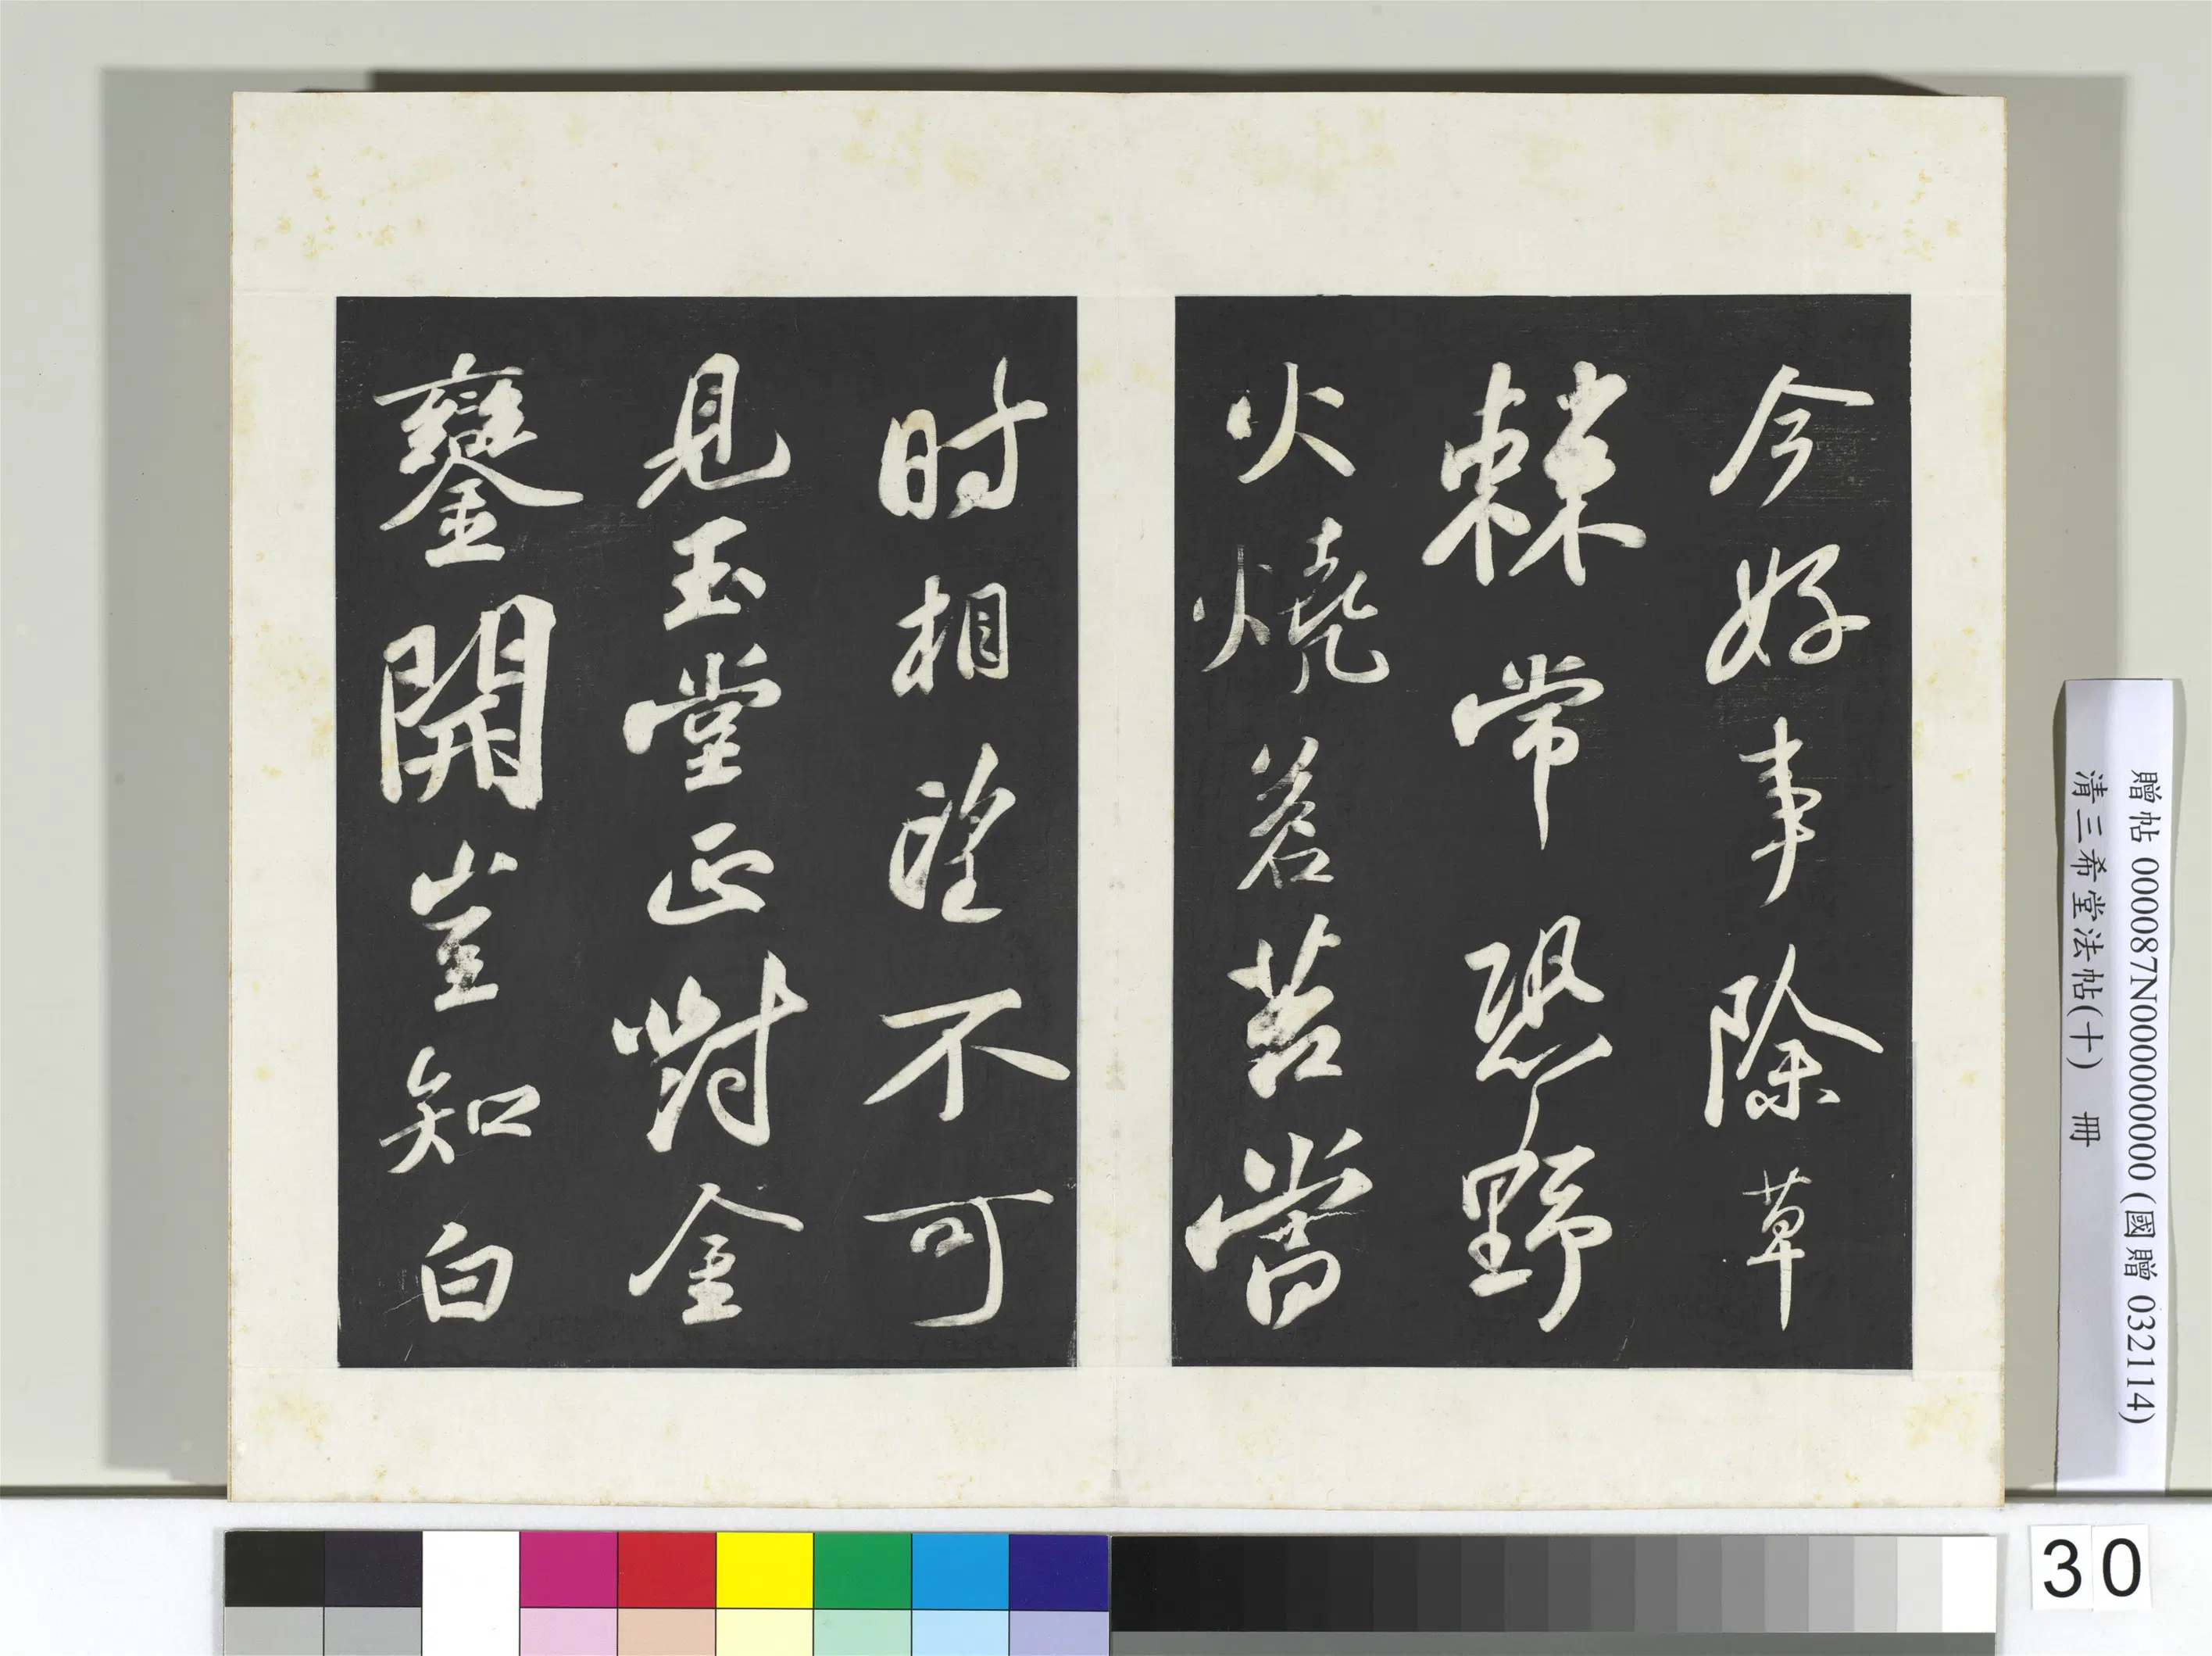 今好事除草
棘常恐野
火燒蒼苔當
时相望不可
見玉堂正對金
鑾開豈知白
贈帖 000087N000000000 (國贈 032114)
清三希堂法帖(十) 冊
30